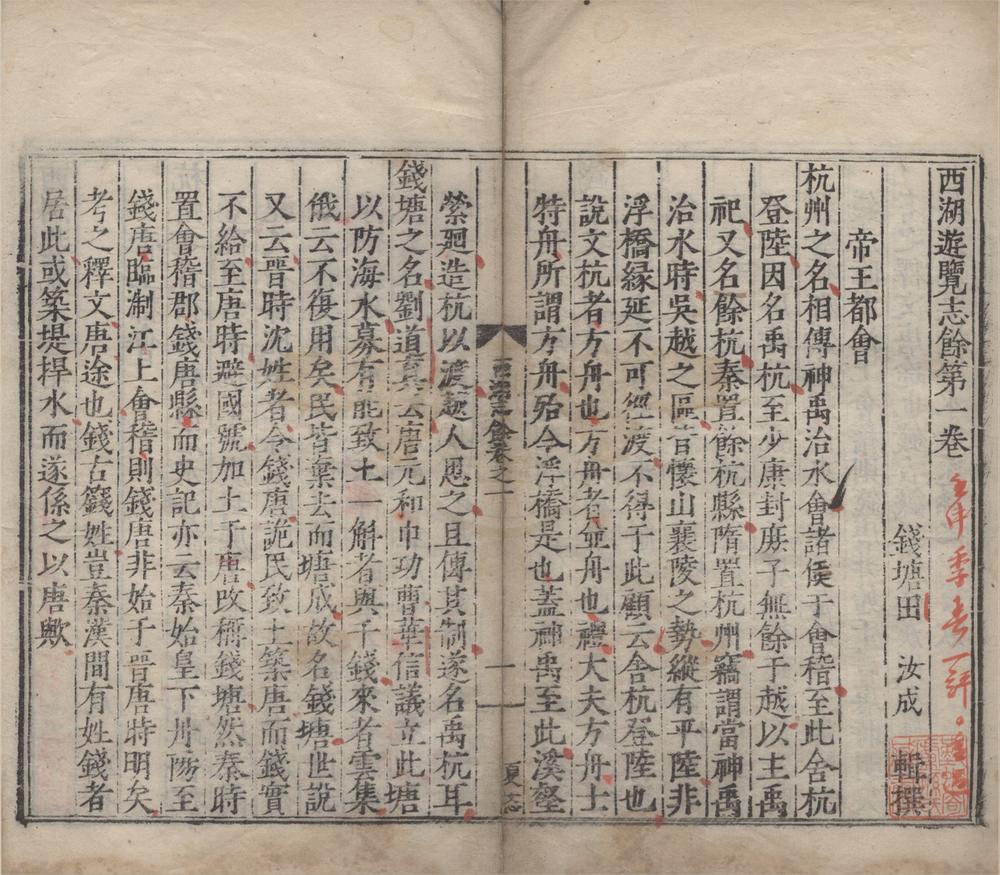 西湖遊覽志餘第一卷
錢塘田 汝成 輯撰
帝王都會
杭州之名相傳神禹治水會諸侯于會稽至此舍杭
登陸因名禹杭至少康封庶子無餘于越以主禹
祀又名餘杭秦置餘杭縣隋置杭州竊謂當神禹
治水時吳越之區皆懷山襄陵之勢縱有平陸非
浮橋緣延不可徑渡不得于此顧云舍杭登陸也
說文杭者方舟也方舟者並舟也禮大夫方舟士
特舟所謂方舟殆今浮橋是也蓋神禹至此溪壑
西湖志餘卷之一
一
夏志
縈廻造杭以渡越人思之且傳其制遂名禹杭耳
錢塘之名劉道真云唐元和中功曹華信議立此塘
以防海水募有能致土一斛者與千錢來者雲集
俄云不復用矣民皆棄去而塘成故名錢塘世說
又云晋時沈姓者令錢唐詭民致土築唐而錢實
不給至唐時避國號加土于唐改稱錢塘然秦時
置會稽郡錢唐縣而史記亦云秦始皇下丹陽至
錢唐臨淛江上會稽則錢唐非始于晋唐時明矣
考之釋文唐途也錢古籛姓豈秦漢間有姓錢者
居此或築堤捍水而遂係之以唐歟